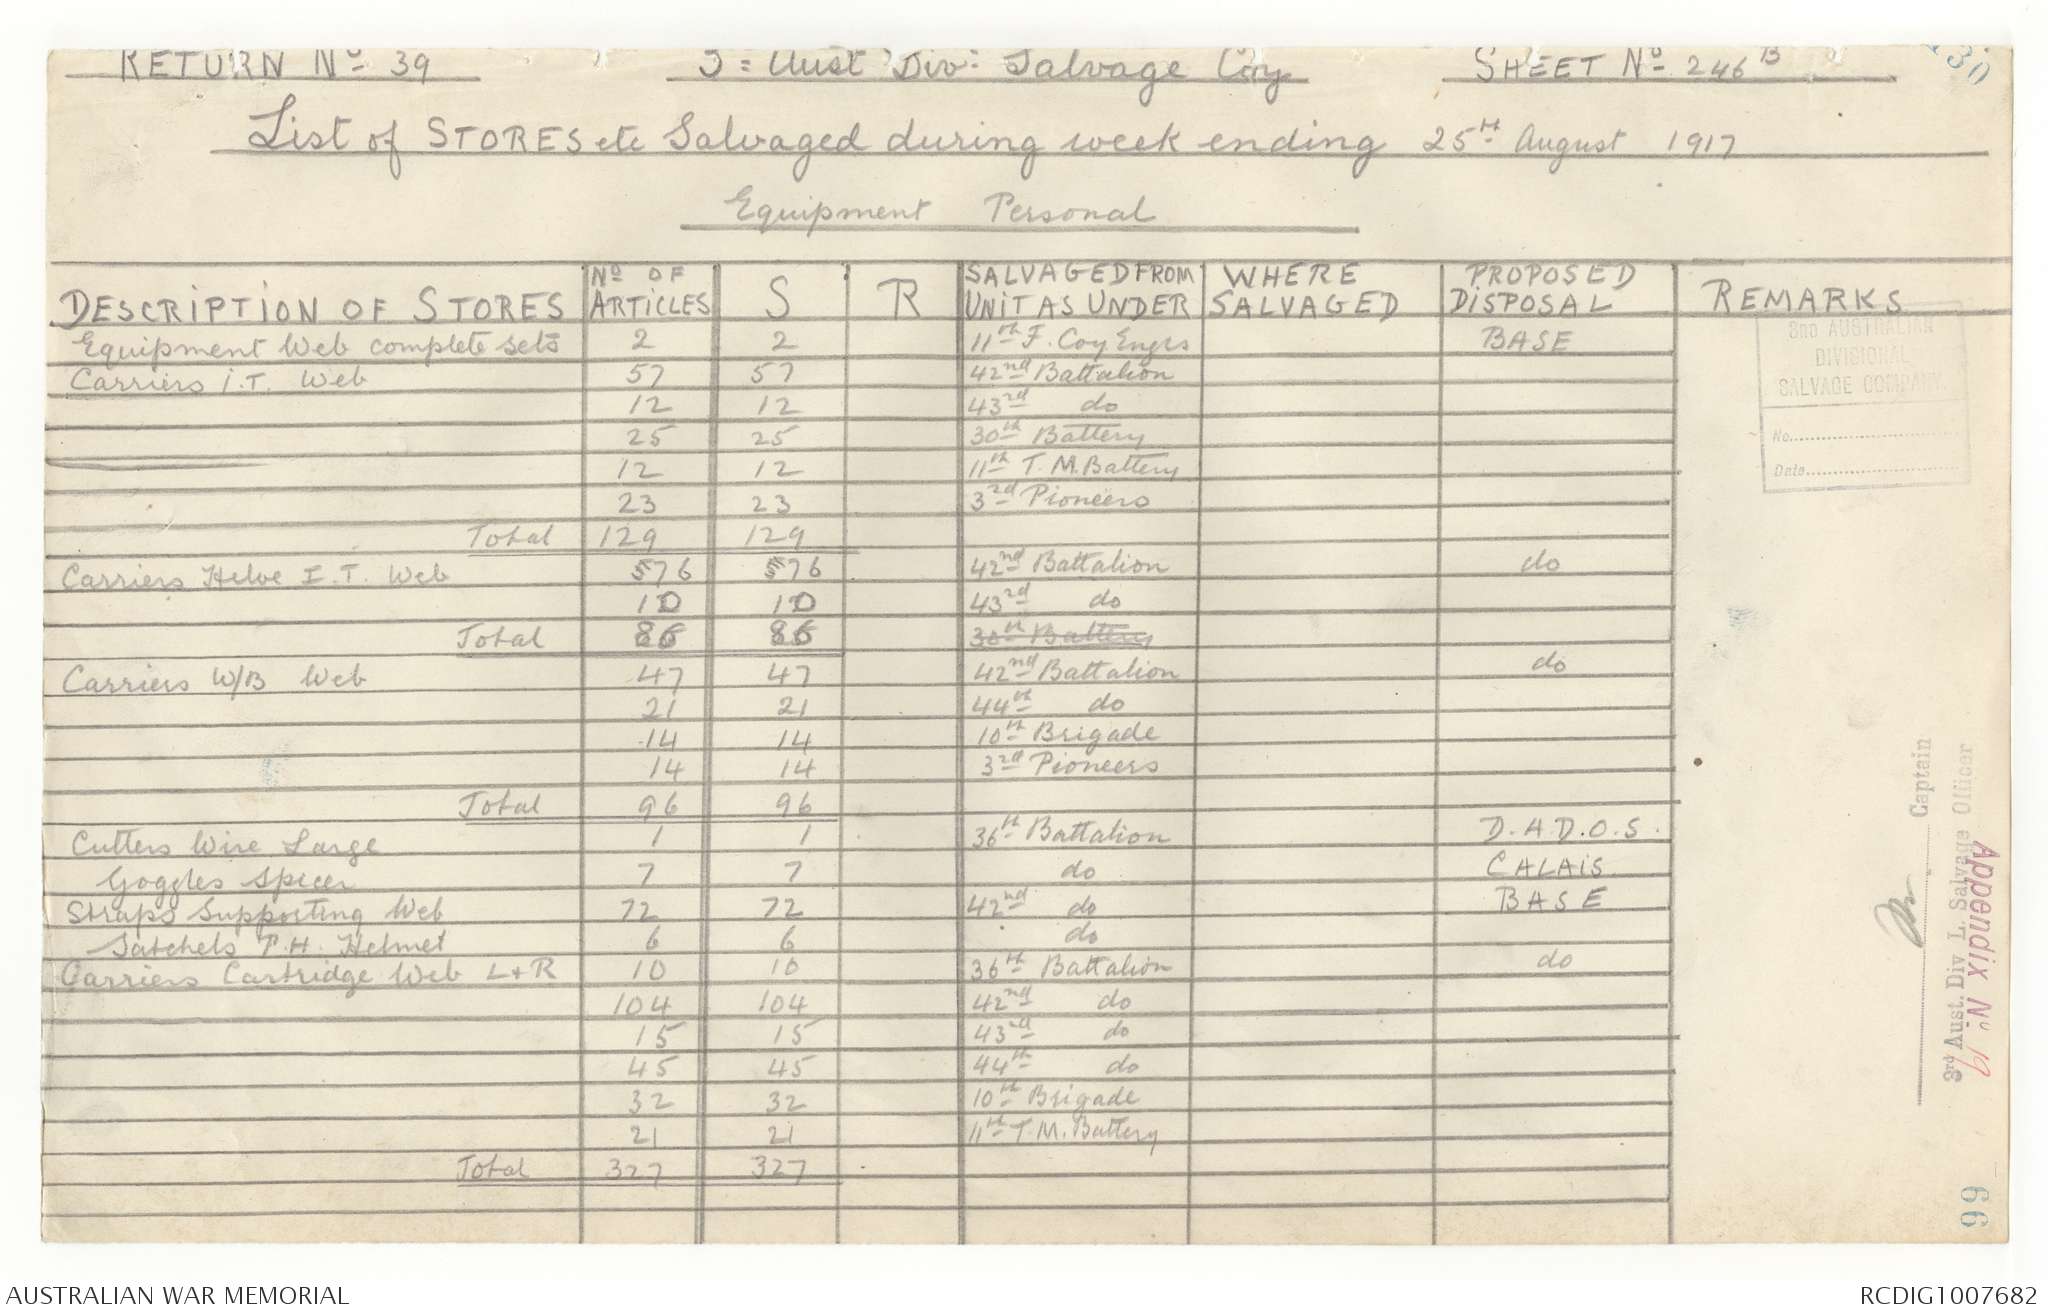 RETURN No 39 3 = Aust Div: Salvage Coy SHEET No 246B
List of STORES etc Salvaged during week ending 25TH August 1917
Equipment Personal
DESCRIPTION OF STORES No OF ARTICLES S R SALVAGED FROM UNIT AS UNDER WHERE SALVAGED PROPOSED DISPOSAL REMARKS
Equipment Web complete sets 2 2 11th F. Coy Engrs BASE
Carriers I.T. Web 57 57 42nd Battalion
12 12 43rd do
25 25 30th Battery
12 12 11th T.M. Battery
23 23 3rd Pioneers
Total 129 129
Carriers Helve I.T. Web 576 576 42nd Battalion do
10 10 43rd do
Total 86 86 30th Battery
Carriers W/B Web 47 47 42nd Battalion do
21 21 44th do
14 14 10th Brigade
14 14 3rd Pioneers
Total 96 96
Cutters Wire Large 1 1 36th Battalion D.A.D.O.S.
Goggles Spicer 7 7 do CALAIS
Straps Supporting Web 72 72 42nd do BASE
Satchels P.H. Helmet 6 6 do
Carriers Cartridge Web L+R 10 10 36th Battalion do
104 104 42nd do
15 15 43rd do
45 45 44th do
32 32 10th Brigade
21 21 11th T.M. Battery
Total 327 327
3RD AUSTRALIAN
DIVISIONAL
SALVAGE COMPANY.
No.
Date
Captain
3rd Aust. Div L. Salvage Officer
Appendix No 19
66
AUSTRALIAN WAR MEMORIAL RCDIG1007682